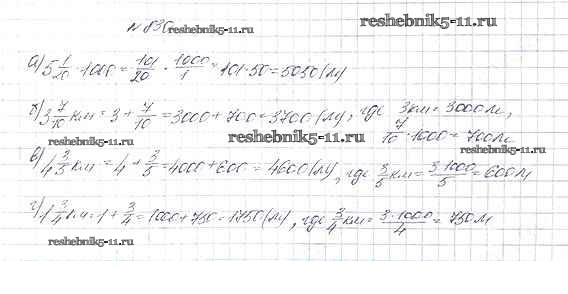 reshebnik5-11.ru
№830 reshebnik5-11.ru
а) 5 1/20 · 1000 = 101/20 · 1000/1 = 101·50 = 5050 (м)
б) 3 7/10 км = 3 + 7/10 = 3000 + 700 = 3700 (м), где 3км = 3000м,
7/10 · 1000 = 700м
reshebnik5-11.ru
reshebnik5-11.ru
reshebnik5-11.ru
в) 4 3/5 км = 4 + 3/5 = 4000 + 600 = 4600 (м), где 3/5 км = 3·1000/5 = 600м
г) 1 3/4 км = 1 + 3/4 = 1000 + 750 = 1750 (м), где 3/4 км = 3·1000/4 = 750м
reshebnik5-11.ru
reshebnik5-11.ru